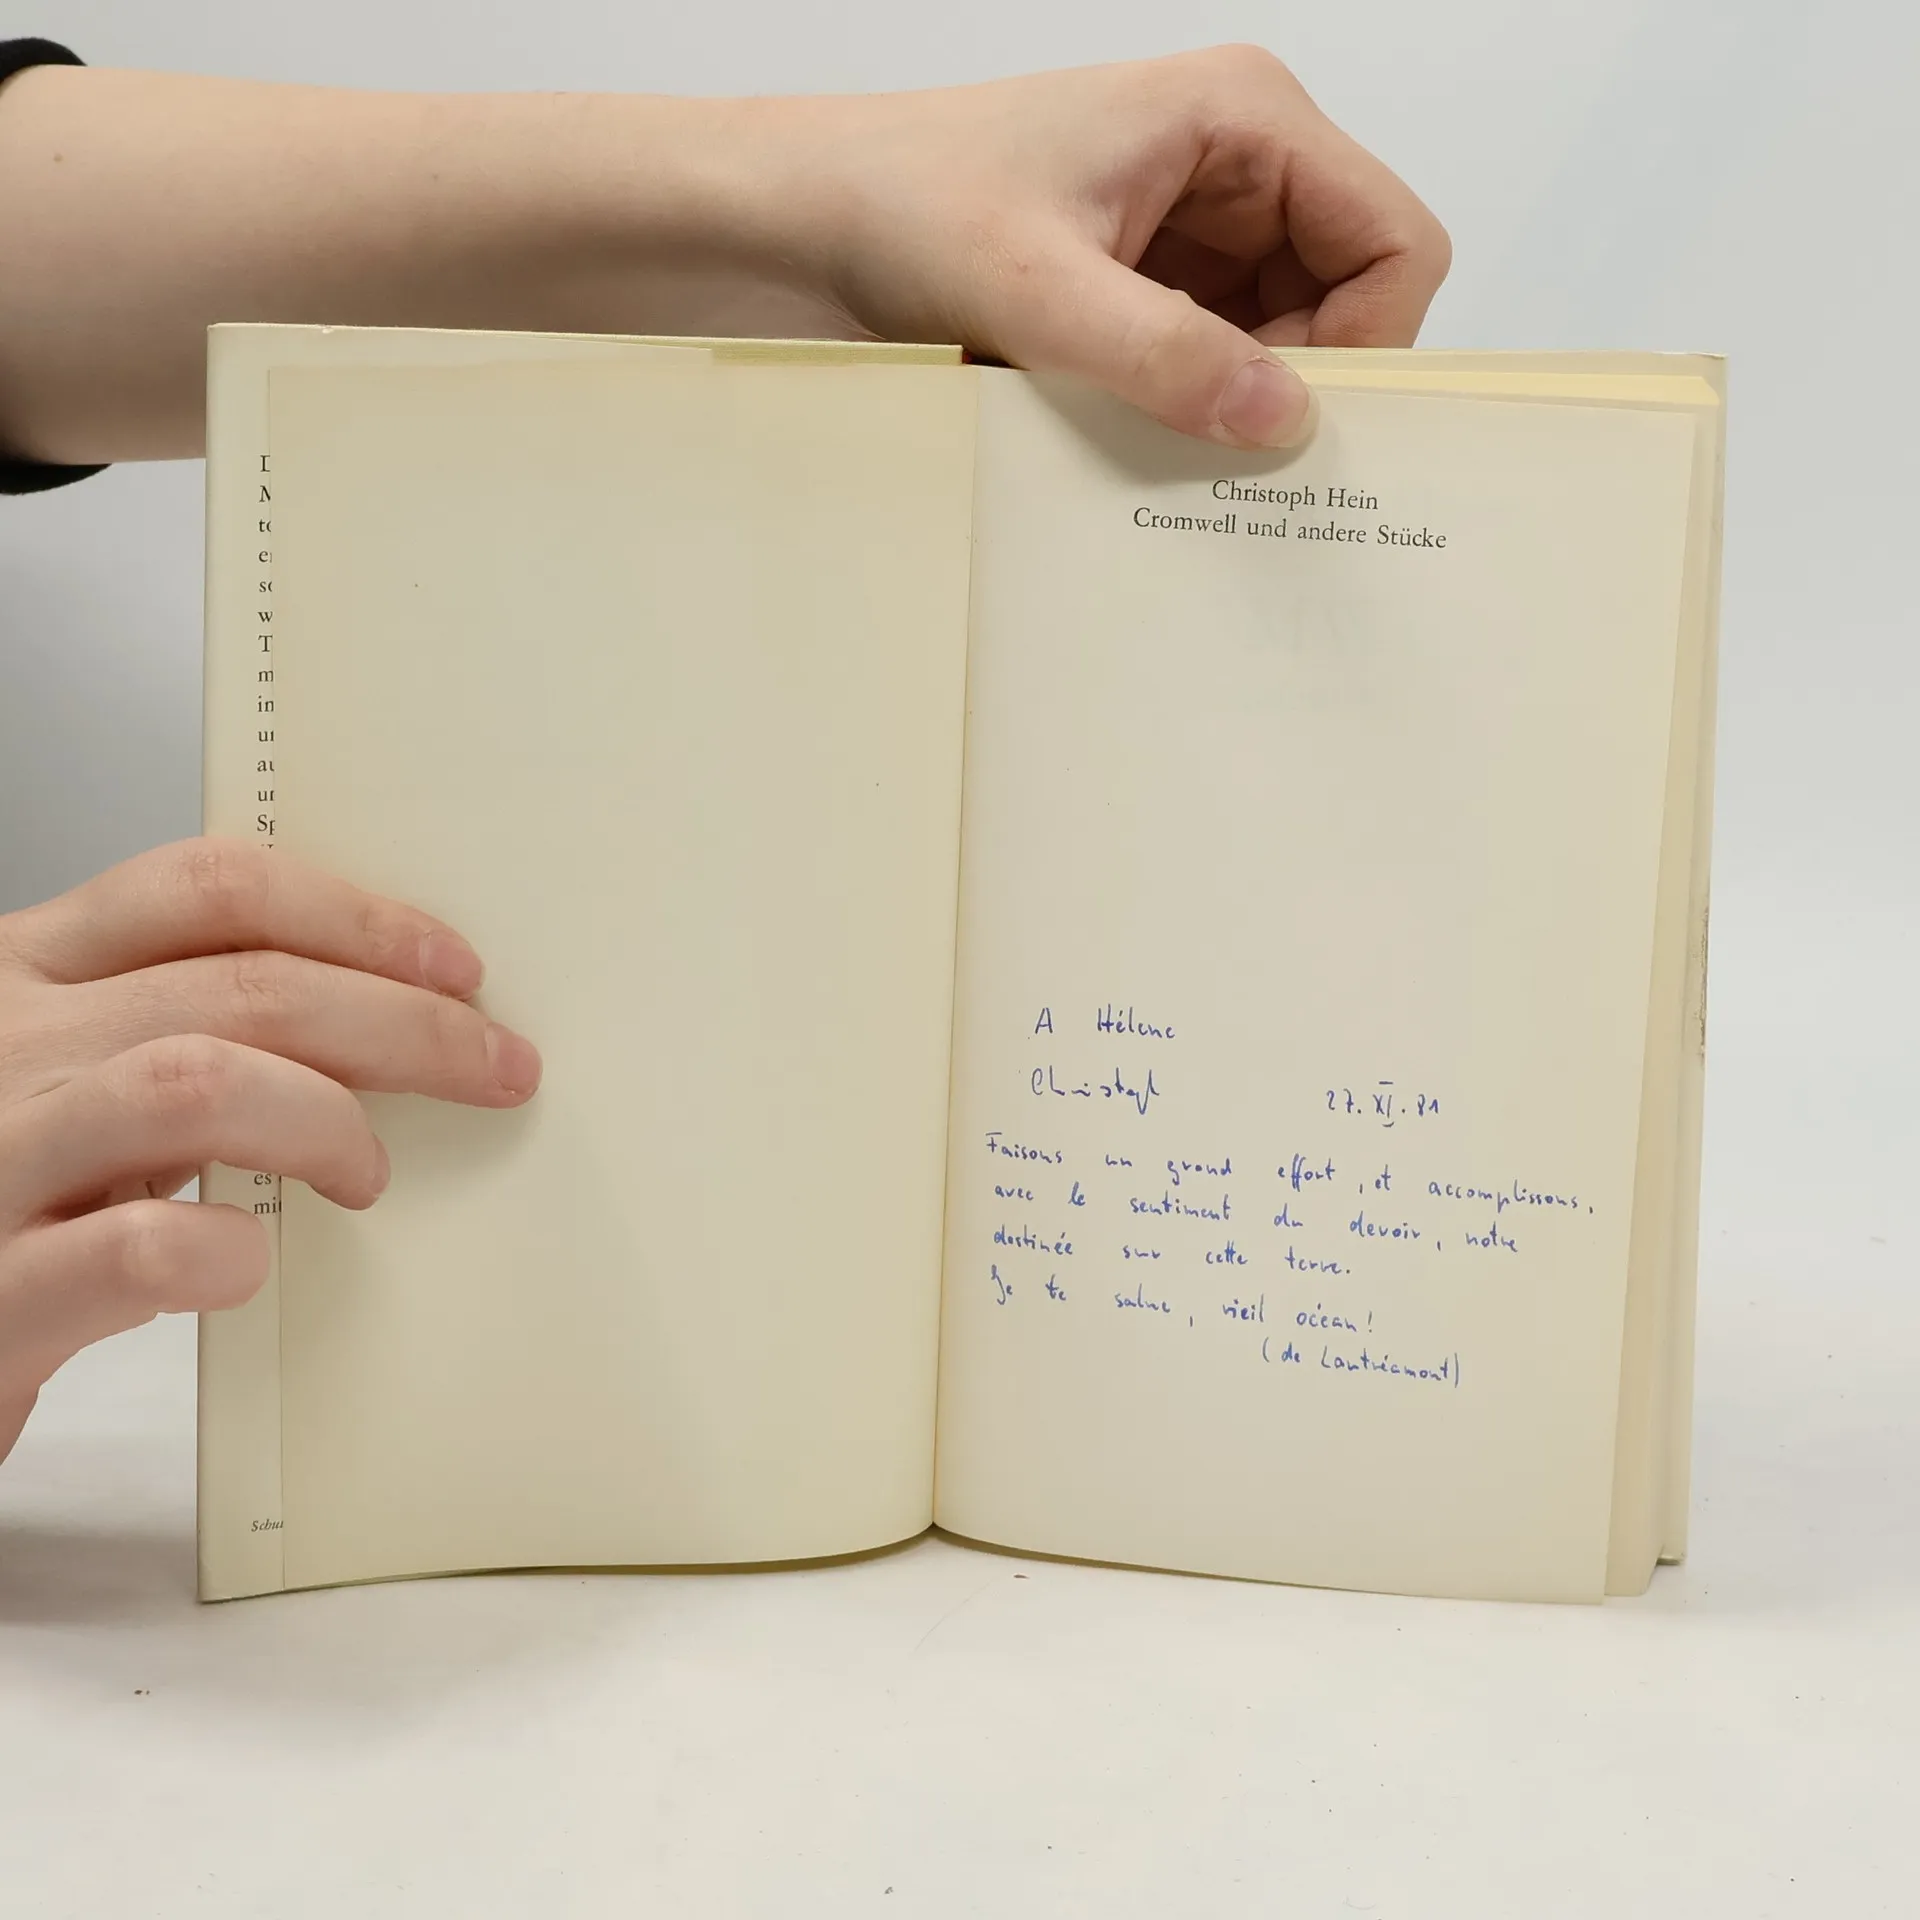 Christoph Hein
Cromwell und andere Stücke
A Hélène
Christoph
27. XI. 81
Faisons un grand effort, et accomplissons,
avec le sentiment du devoir, notre
destinée sur cette terre.
Je te salue, vieil océan!
(de Lautréamont)
D
M
to
e
so
w
T
m
in
un
au
un
Sp
es
mit
Schu